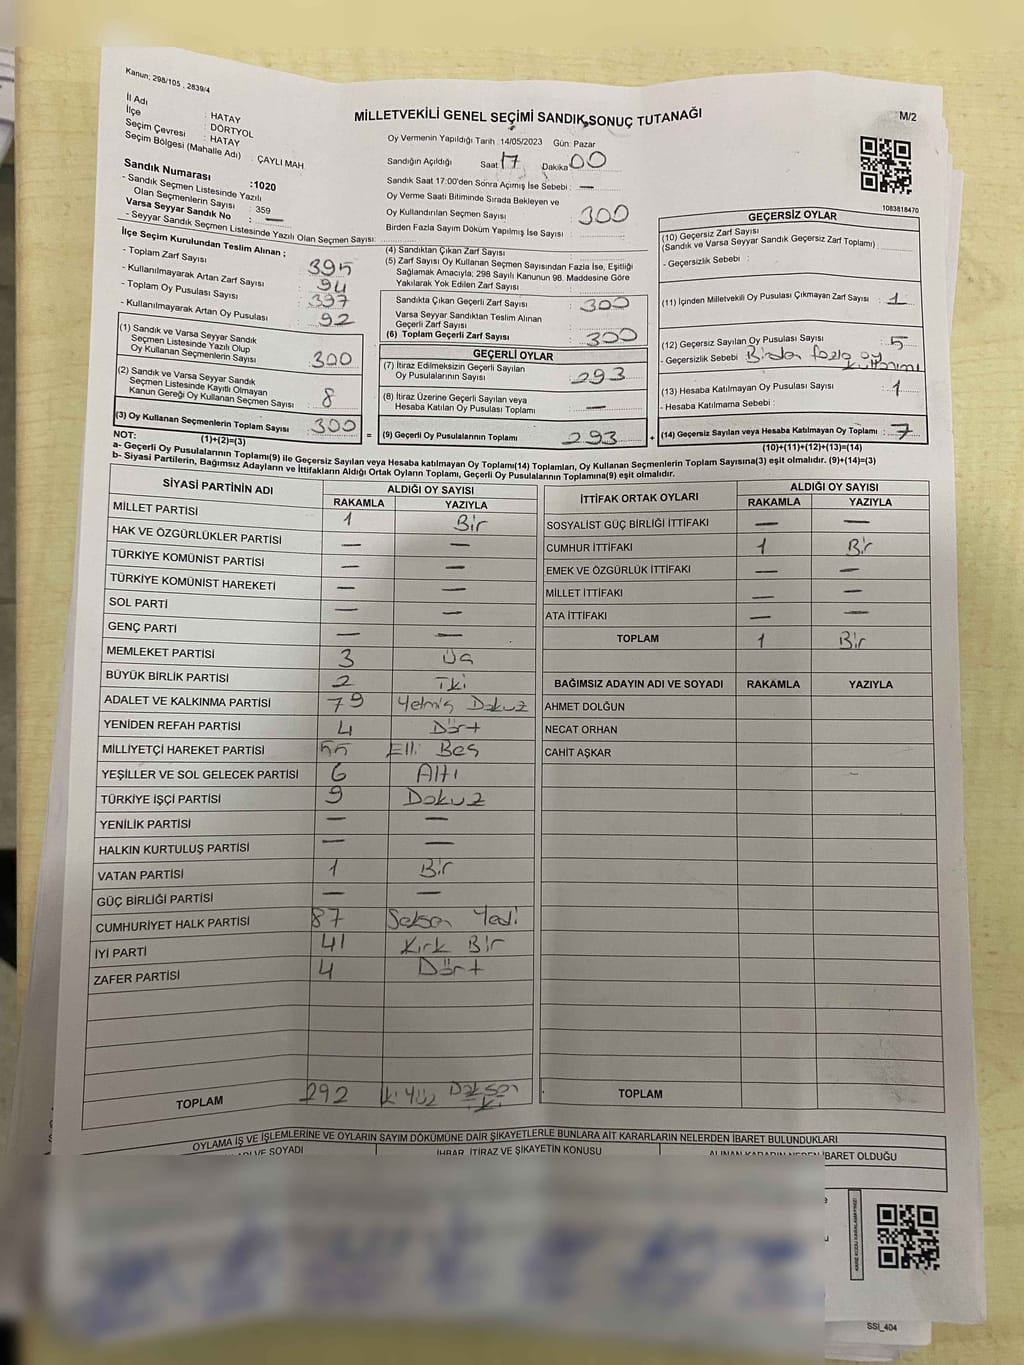 Kanun; 298/105 , 2839/4
MİLLETVEKİLİ GENEL SEÇİMİ SANDIK SONUÇ TUTANAĞI
M/2
İl Adı : HATAY
İlçe : DÖRTYOL
Seçim Çevresi : HATAY
Seçim Bölgesi (Mahalle Adı) : ÇAYLI MAH.
Sandık Numarası :1020
- Sandık Seçmen Listesinde Yazılı
Olan Seçmenlerin Sayısı : 359
Varsa Seyyar Sandık No : —
- Seyyar Sandık Seçmen Listesinde Yazılı Olan Seçmen Sayısı:
İlçe Seçim Kurulundan Teslim Alınan ;
- Toplam Zarf Sayısı : 395
- Kullanılmayarak Artan Zarf Sayısı : 94
- Toplam Oy Pusulası Sayısı : 397
- Kullanılmayarak Artan Oy Pusulası : 92
(1) Sandık ve Varsa Seyyar Sandık
Seçmen Listesinde Yazılı Olup
Oy Kullanan Seçmenlerin Sayısı : 300
(2) Sandık ve Varsa Seyyar Sandık
Seçmen Listesinde Kayıtlı Olmayan
Kanun Gereği Oy Kullanan Seçmen Sayısı : 8
(3) Oy Kullanan Seçmenlerin Toplam Sayısı : 300
(1)+(2)=(3)
Oy Vermenin Yapıldığı Tarih : 14/05/2023 Gün: Pazar
Sandığın Açıldığı Saat 17 Dakika 00
Sandık Saat 17:00'den Sonra Açımış İse Sebebi : —
Oy Verme Saati Bitiminde Sırada Bekleyen ve
Oy Kullandırılan Seçmen Sayısı : 300
Birden Fazla Sayım Döküm Yapılmış İse Sayısı :
(4) Sandıktan Çıkan Zarf Sayısı :
(5) Zarf Sayısı Oy Kullanan Seçmen Sayısından Fazla İse, Eşitliği
Sağlamak Amacıyla; 298 Sayılı Kanunun 98. Maddesine Göre
Yakılarak Yok Edilen Zarf Sayısı :
Sandıkta Çıkan Geçerli Zarf Sayısı : 300
Varsa Seyyar Sandıktan Teslim Alınan
Geçerli Zarf Sayısı :
(6) Toplam Geçerli Zarf Sayısı : 300
GEÇERLİ OYLAR
(7) İtiraz Edilmeksizin Geçerli Sayılan
Oy Pusulalarının Sayısı : 293
(8) İtiraz Üzerine Geçerli Sayılan veya
Hesaba Katılan Oy Pusulası Toplamı : —
= (9) Geçerli Oy Pusulalarının Toplamı : 293 +
1083818470
GEÇERSİZ OYLAR
(10) Geçersiz Zarf Sayısı
(Sandık ve Varsa Seyyar Sandık Geçersiz Zarf Toplamı) :
- Geçersizlik Sebebi :
(11) İçinden Milletvekili Oy Pusulası Çıkmayan Zarf Sayısı : 1
(12) Geçersiz Sayılan Oy Pusulası Sayısı : 5
- Geçersizlik Sebebi : Birden fazla oy kullanımı
(13) Hesaba Katılmayan Oy Pusulası Sayısı : 1
- Hesaba Katılmama Sebebi :
(14) Geçersiz Sayılan veya Hesaba Katılmayan Oy Toplamı : 7
(10)+(11)+(12)+(13)=(14)
NOT:
a- Geçerli Oy Pusulalarının Toplamı(9) ile Geçersiz Sayılan veya Hesaba katılmayan Oy Toplamı(14) Toplamları, Oy Kullanan Seçmenlerin Toplam Sayısına(3) eşit olmalıdır. (9)+(14)=(3)
b- Siyasi Partilerin, Bağımsız Adayların ve İttifakların Aldığı Ortak Oyların Toplamı, Geçerli Oy Pusulalarının Toplamına(9) eşit olmalıdır.
SİYASİ PARTİNİN ADI ALDIĞI OY SAYISI
RAKAMLA YAZIYLA
MİLLET PARTİSİ 1 Bir
HAK VE ÖZGÜRLÜKLER PARTİSİ — —
TÜRKİYE KOMÜNİST PARTİSİ — —
TÜRKİYE KOMÜNİST HAREKETİ — —
SOL PARTİ — —
GENÇ PARTİ — —
MEMLEKET PARTİSİ 3 Üç
BÜYÜK BİRLİK PARTİSİ 2 İki
ADALET VE KALKINMA PARTİSİ 79 Yetmiş Dokuz
YENİDEN REFAH PARTİSİ 4 Dört
MİLLİYETÇİ HAREKET PARTİSİ 55 Elli Beş
YEŞİLLER VE SOL GELECEK PARTİSİ 6 Altı
TÜRKİYE İŞÇİ PARTİSİ 9 Dokuz
YENİLİK PARTİSİ — —
HALKIN KURTULUŞ PARTİSİ — —
VATAN PARTİSİ 1 Bir
GÜÇ BİRLİĞİ PARTİSİ — —
CUMHURİYET HALK PARTİSİ 87 Seksen Yedi
İYİ PARTİ 41 Kırk Bir
ZAFER PARTİSİ 4 Dört
TOPLAM 292 İki Yüz Doksan İki
İTTİFAK ORTAK OYLARI ALDIĞI OY SAYISI
RAKAMLA YAZIYLA
SOSYALİST GÜÇ BİRLİĞİ İTTİFAKI — —
CUMHUR İTTİFAKI 1 Bir
EMEK VE ÖZGÜRLÜK İTTİFAKI — —
MİLLET İTTİFAKI — —
ATA İTTİFAKI — —
TOPLAM 1 Bir
BAĞIMSIZ ADAYIN ADI VE SOYADI RAKAMLA YAZIYLA
AHMET DOLĞUN
NECAT ORHAN
CAHİT AŞKAR
TOPLAM
OYLAMA İŞ VE İŞLEMLERİNE VE OYLARIN SAYIM DÖKÜMÜNE DAİR ŞİKAYETLERLE BUNLARA AİT KARARLARIN NELERDEN İBARET BULUNDUKLARI
VE SOYADI İHBAR, İTİRAZ VE ŞİKAYETİN KONUSU ALINAN KARARIN NEDEN İBARET OLDUĞU
SSİ_404